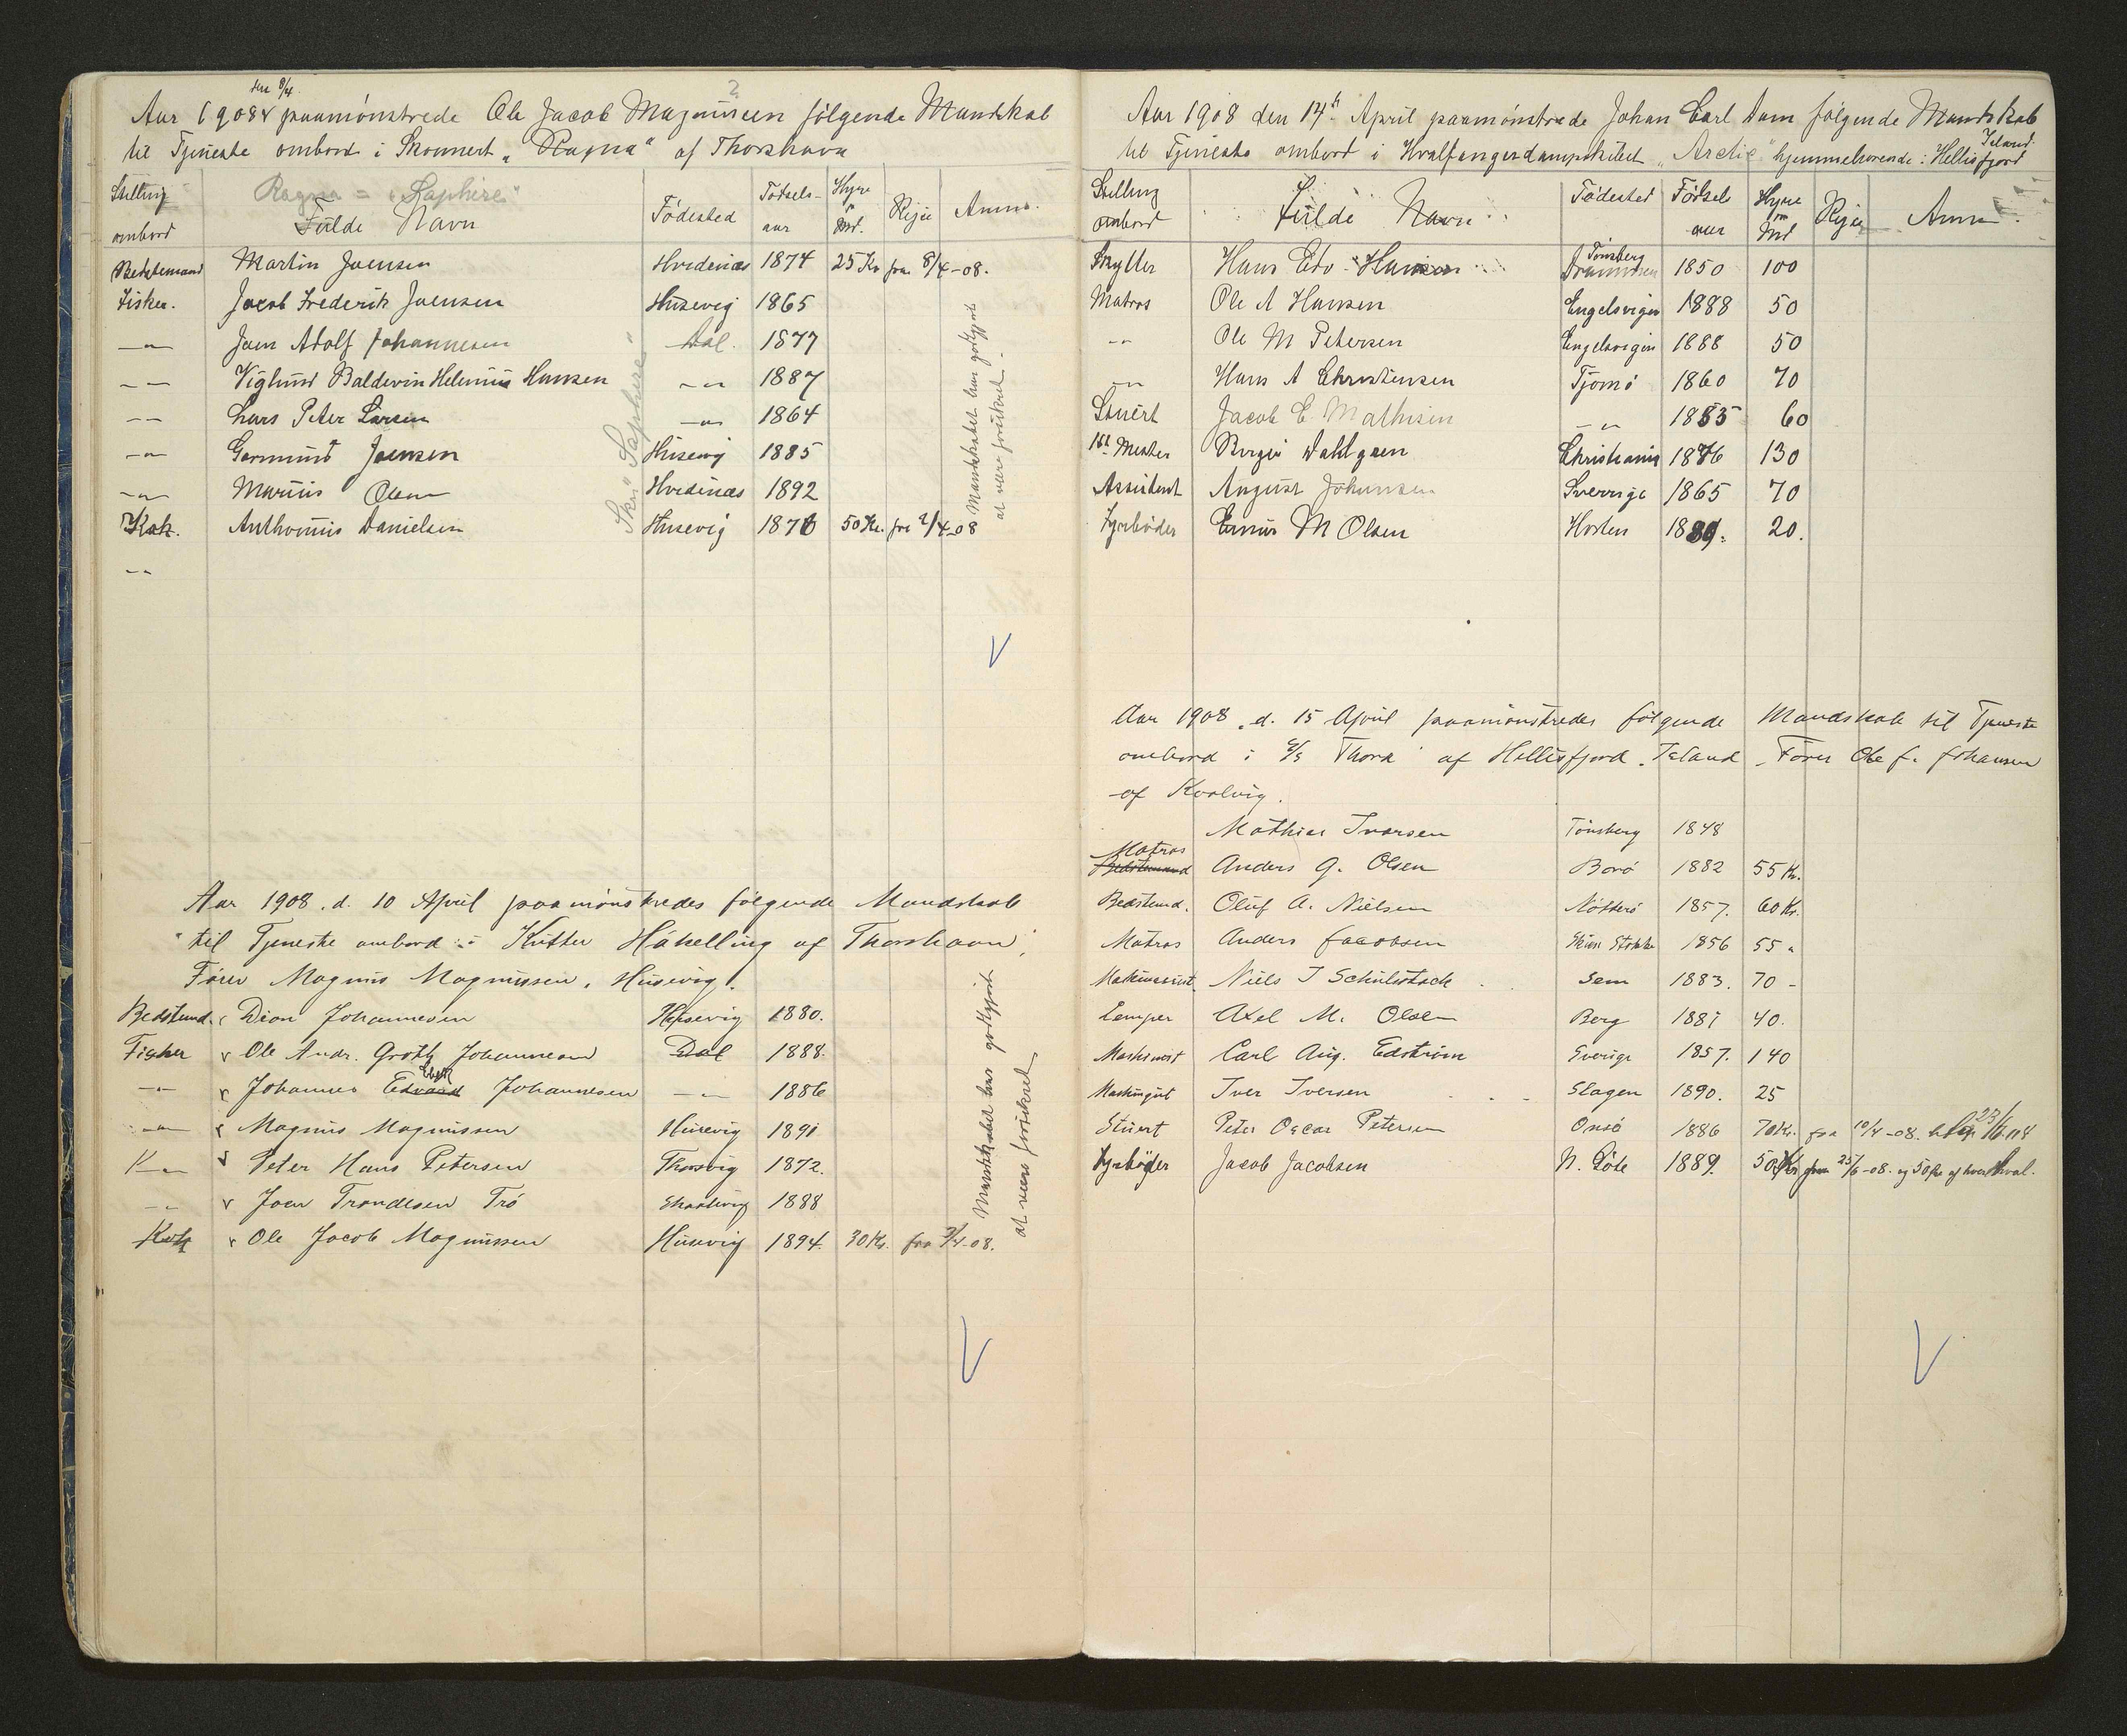 den 8/4.
Aar 1908 paamönstrede Ole Jacob Magnussen fölgende Mandskab
til Tjeneste ombord i Skonnert „Ragna" af Thorshavn
?
Ragna = „Saphire"
Stilling ombord Fülde Navn Födested Födsels-aar Hyre pr Md. Rejse Anm.
Bedstemand Martin Joensen Hvidenæs 1874 25 Kr fra 8/4-08.
Fisker. Jacob Frederik Joensen Husevig 1865
—"— Joen Adolf Johannesen Dal. 1877
—"— Viglund Baldevin Helenius Hansen —"— 1887
—"— Lars Peter Larsen —"— 1864
—"— Gormund Joensen Husevig 1885
—"— Marius Olsen Hvidenæs 1892
Kok. Anthonius Danielsen Husevig 1876 50 Kr. fra 2/4-08
—"—
Sk. "Saphire"
Mandskabet har godtgjort
at være forsikret.
V
Aar 1908. d. 10 April paamönstredes fölgende Mandskab
til Tjeneste ombord i Kutter Håkelling af Thorshavn,
Förer Magnus Magnussen, Husevig.
Bedstemd. Dion Johannesen Husevig 1880.
Fisker Ole Andr. Groth Johannesen Dal 1888.
—"— Johannes Edvard Johannesen —"— 1886
—"— Magnus Magnussen Husevig 1891
K—"— Peter Hans Petersen Thorsvig 1872.
—"— Joen Trondesen Trö Skaalevig 1888
Kok Ole Jacob Magnussen Husevig 1894. 30 Kr. fra 3/4-08.
Mandskabet har godtgjort
at være forsikret
V
Aar 1908 den 14de April paamönstrede Johan Carl Dam fölgende Mandskab
til Tjeneste ombord i Hvalfangerdampskibet „Arctic" hjemmehörende i Hellisfjord
Island.
Stilling ombord Fülde Navn Födested Födsel aar Hyre om Md Rejse Anm.
Skytter Hans Edv. Hansen Tönsberg Drammen 1850 100
Matros Ole A Hansen Engelsvigen 1888 50
—"— Ole M Petersen Engelsvigen 1888 50
—"— Hans A Christensen Tjömö 1860 70
Stuert Jacob E. Mathisen —"— 1885 60
1ste Mester Birger Dahlgren Christiania 1876 130
Assistent August Johansen Sverrige 1865 70
Fyrböder M Olsen Horten 1889. 20.
Aar 1908. d. 15 April paamönstredes fölgende Mandskab til Tjeneste
ombord i S/S Thora af Hellisfjord, Island, Förer Ole J. Johansen
af Kvalvig.
Mathias Ivarsen Tönsberg 1848
Matros Bedstemand Anders G. Olsen Borö 1882 55 Kr.
Bedstemd. Oluf A. Nielsen Nötterö 1857. 60 Kr.
Matros Anders Jacobsen Stokke 1856 55 "
Maskinassist. Niels J Schulstock Sem 1883. 70 -
Lemper Axel M. Olsen Berg 1881 40.
Maskinist Carl Aug. Edström Sverige 1857. 140
Maskingut Iver Iversen Slagen 1890. 25
Stuert Peter Oscar Petersen Onsö 1886 70 Kr. fra 10/4-08. 23/6.08
Fyrböder Jacob Jacobsen N. Göte 1889. 50 Kr fra 25/6-08. og 50 Kr af hver Hval.
V